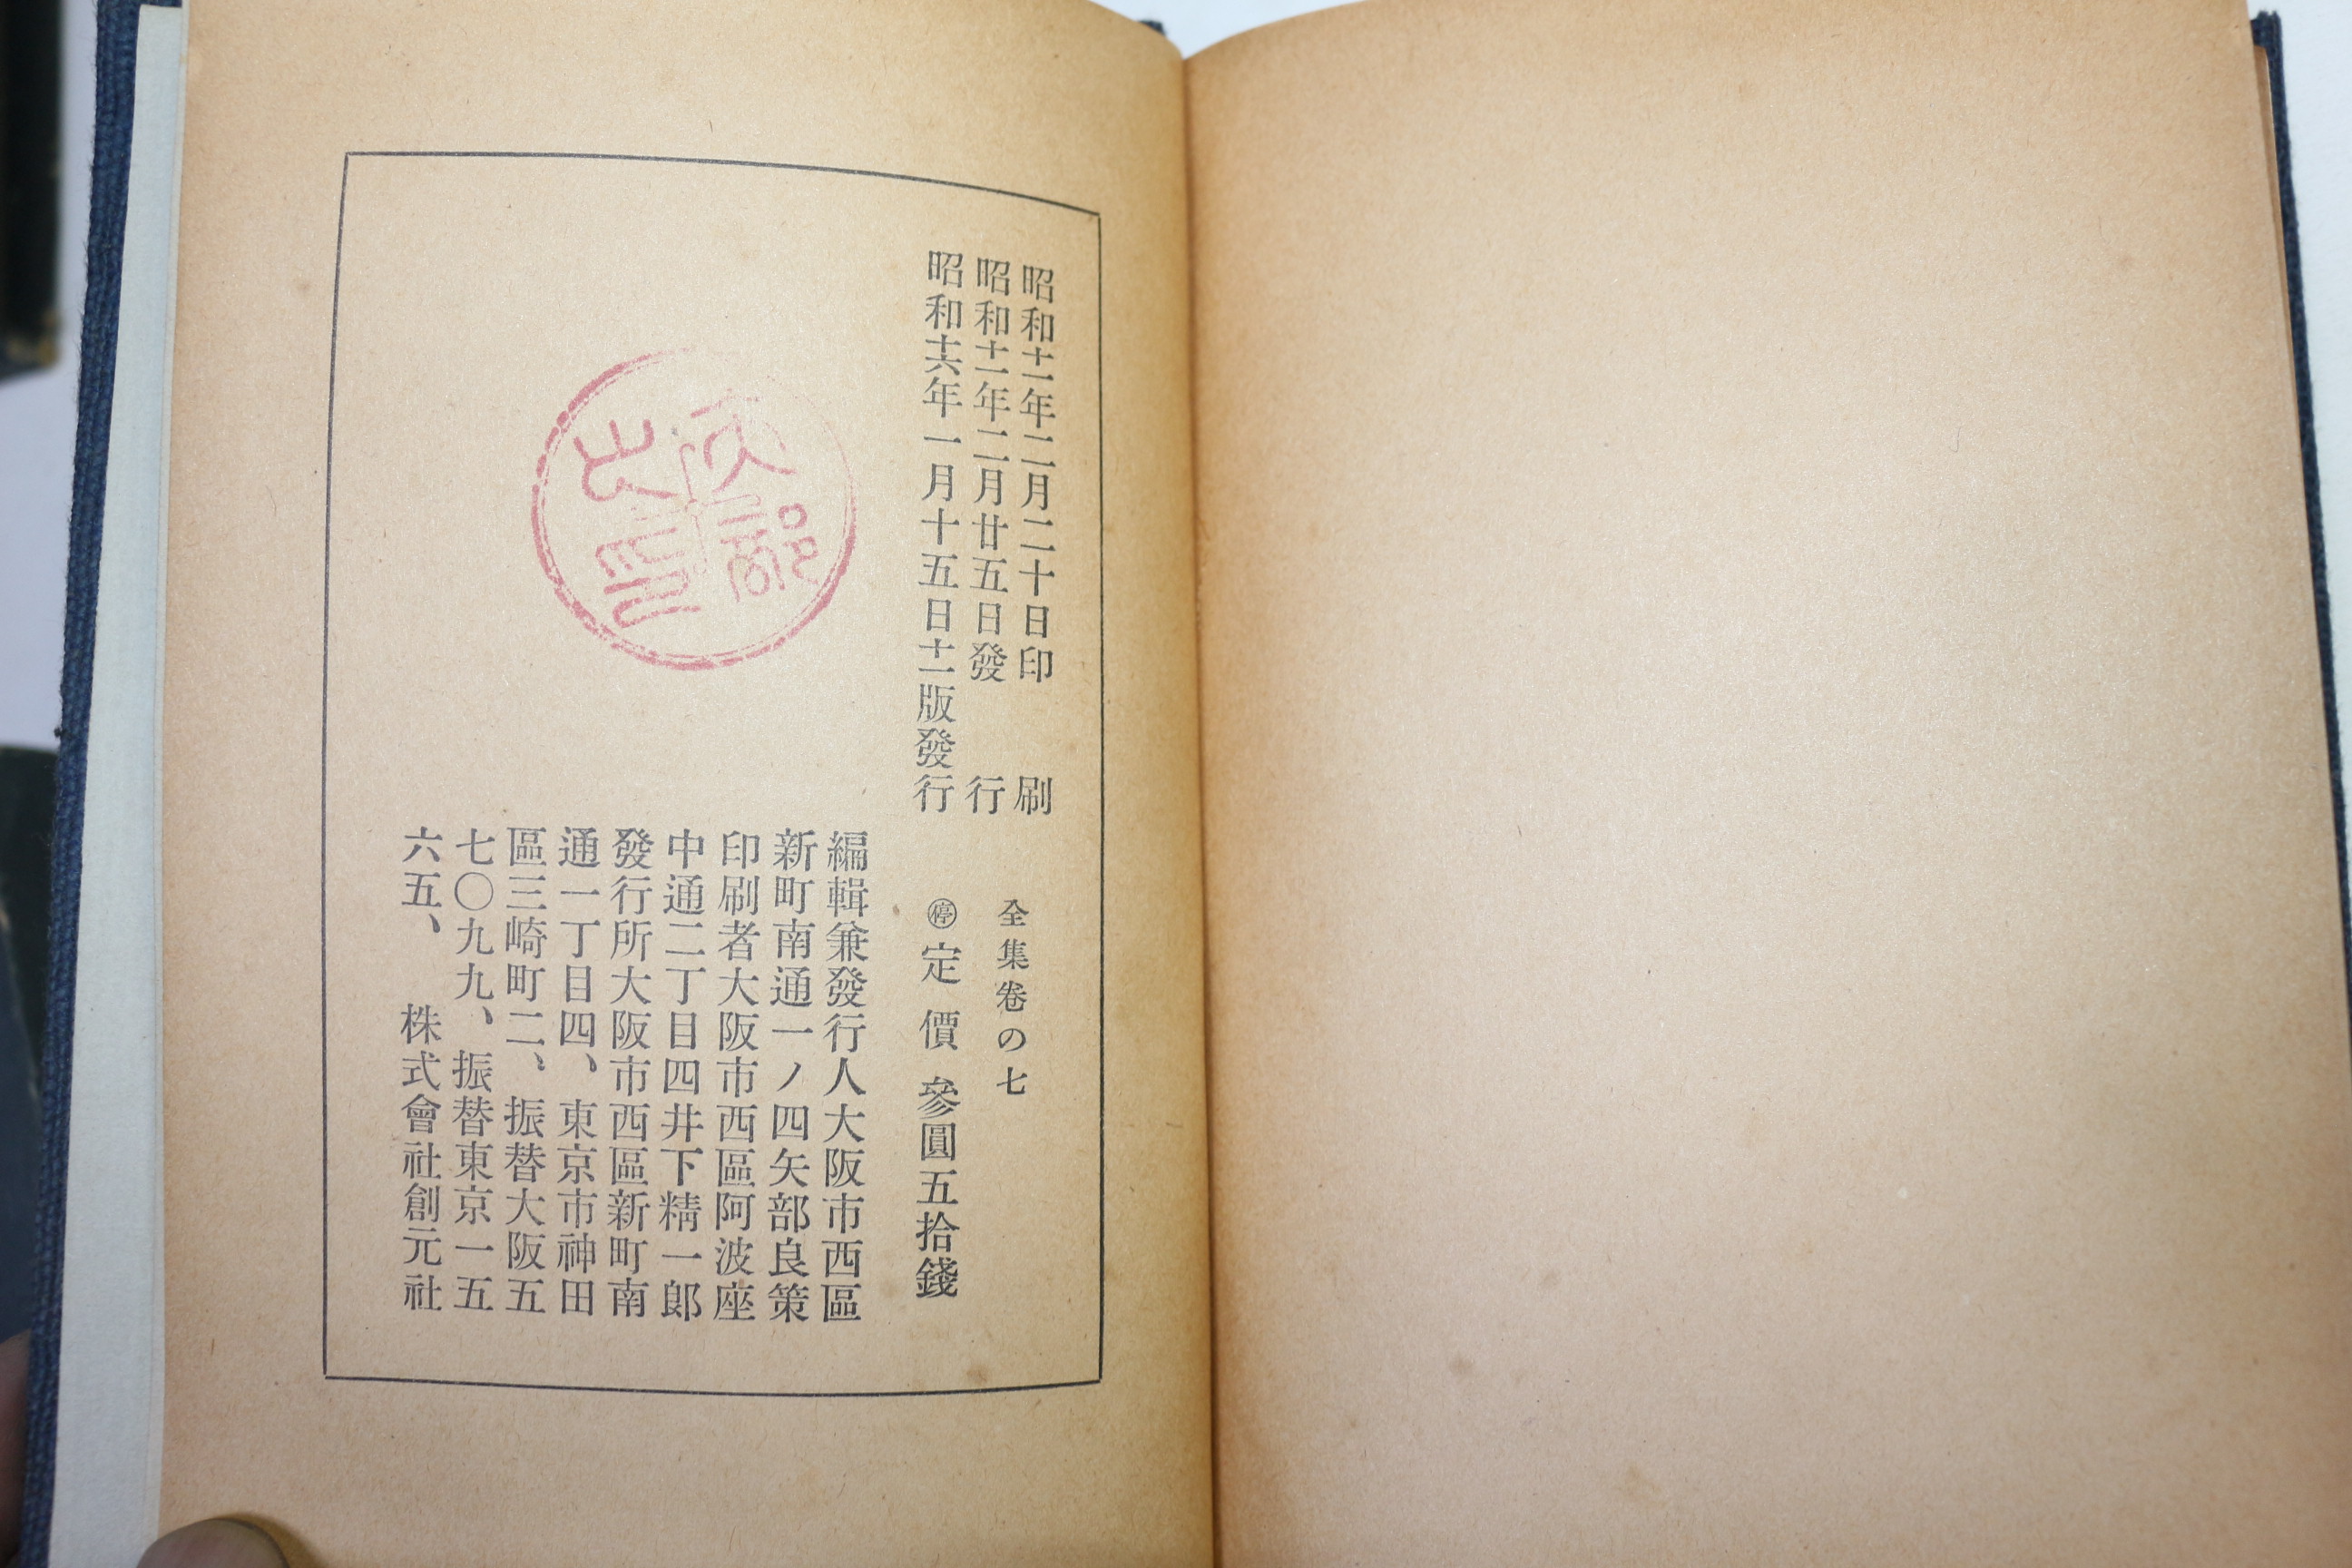 昭和十二年二月二十日印刷
昭和十二年二月廿五日發行
昭和十六年一月十五日十二版發行
全集卷の七
㊡定價參圓五拾錢
矢部
之印
編輯兼發行人大阪市西區
新町南通一ノ四矢部良策
印刷者大阪市西區阿波座
中通二丁目四井下精一郎
發行所大阪市西區新町南
通一丁目四、東京市神田
區三崎町二、振替大阪五
七〇九九、振替東京一五
六五、　株式會社創元社